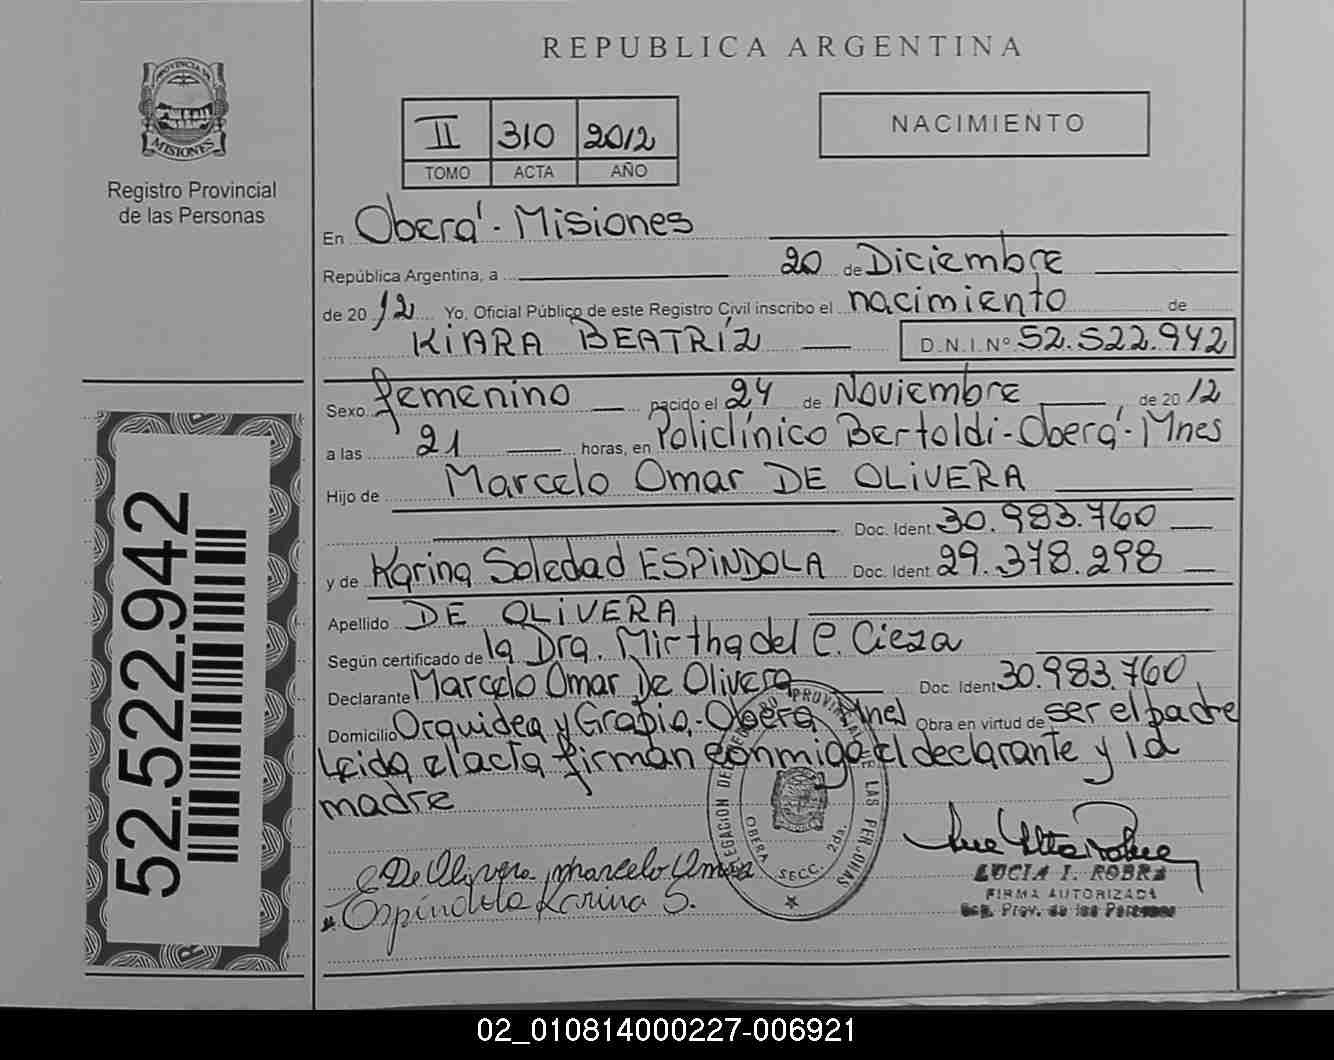 REPUBLICA ARGENTINA
PROVINCIA DE
MISIONES
Registro Provincial
de las Personas
II 310 2012
TOMO ACTA AÑO
NACIMIENTO
En Oberá - Misiones
República Argentina, a 20 de Diciembre
de 2012 Yo, Oficial Público de este Registro Civil inscribo el nacimiento de
KiARA BEATRíZ D.N.I.Nº 52.522.942
Sexo femenino nacido el 24 de Noviembre de 2012
a las 21 horas, en Policlínico Bertoldi-Oberá-Mnes
Hijo de Marcelo Omar DE OLiVERA
Doc. Ident. 30.983.760
y de Karina Soledad ESPiNDOLA Doc. Ident. 29.378.298
Apellido DE OLiVERA
Según certificado de la Dra. Mirtha del C. Cieza
Declarante Marcelo Omar De Olivera Doc. Ident. 30.983.760
Domicilio Orquidea y Grapia,-Obera, Mnes Obra en virtud de ser el padre
Leida el acta firman conmigo el declarante y la
madre
De Olivera Marcelo Omar
Espíndola Karina S.
DELEGACION DEL REGISTRO PROVINCIAL DE LAS PERSONAS
OBERA SECC. 2da.
LUCIA I. ROBRE
FIRMA AUTORIZADA
Reg. Prov. de las Personas
52.522.942
02_010814000227-006921